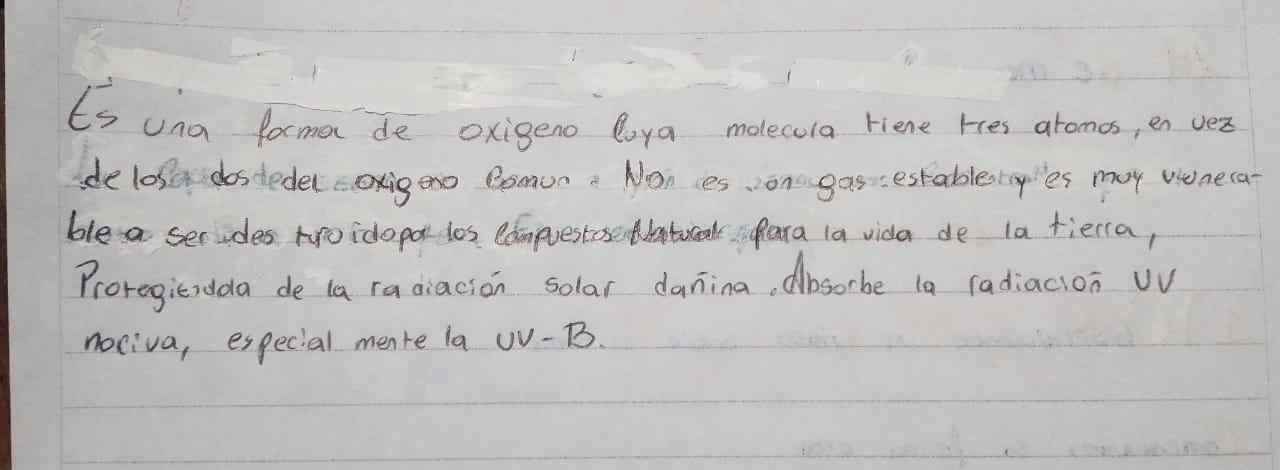 Es una forma de oxigeno cuya molecula tiene tres atomos, en vez
de los dos del oxigeno comun. No es un gas estable y es muy vulnera-
ble a ser destruido por los compuestos Natural para la vida de la tierra,
Protegiendola de la radiación solar dañina. Absorbe la radiación UV
nociva, especial mente la UV-B.